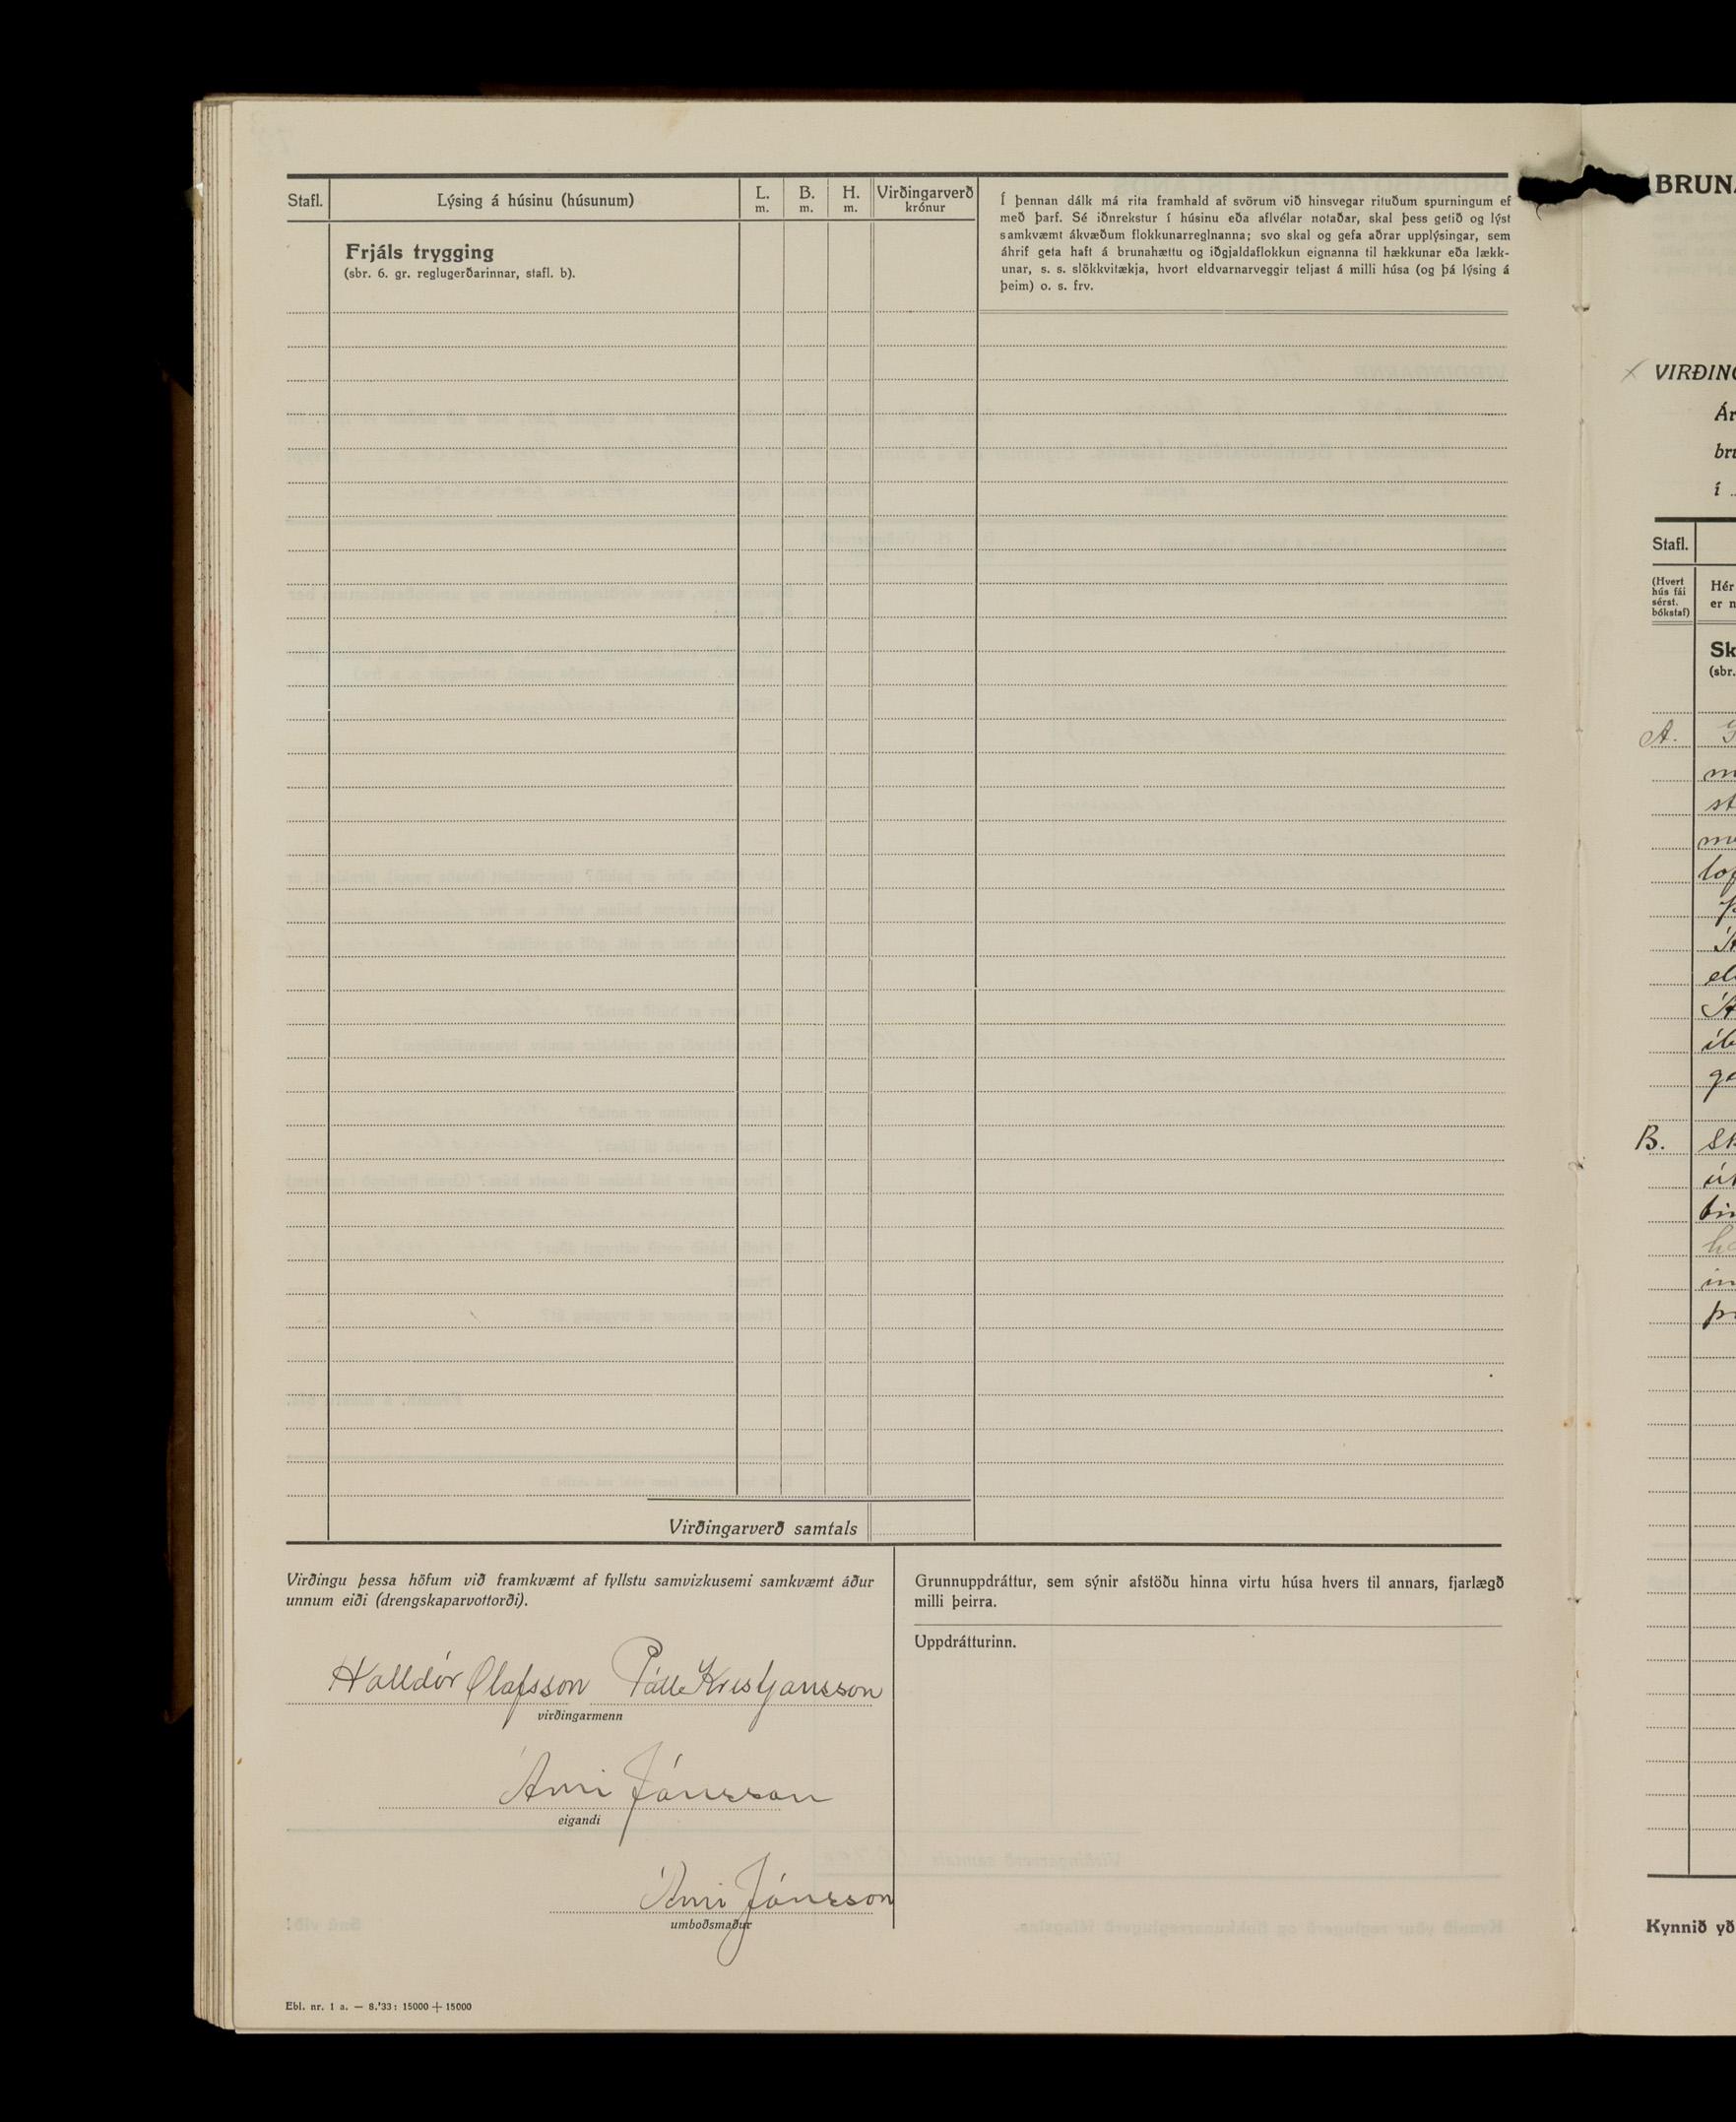 Stafl.
Lýsing á húsinu (húsunum)
L.
m.
B.
m.
H.
m.
Virðingarverð
krónur
Frjáls trygging
(sbr. 6. gr. reglugerðarinnar, stafl. b).
Í þennan dálk má rita framhald af svörum við hinsvegar rituðum spurningum ef
með þarf. Sé iðnrekstur í húsinu eða aflvélar notaðar, skal þess getið og lýst
samkvæmt ákvæðum flokkunarreglnanna; svo skal og gefa aðrar upplýsingar, sem
áhrif geta haft á brunahættu og iðgjaldaflokkun eignanna til hækkunar eða lækk-
unar, s. s. slökkvitækja, hvort eldvarnarveggir teljast á milli húsa (og þá lýsing á
þeim) o. s. frv.
Virðingarverð samtals
Virðingu þessa höfum við framkvæmt af fyllstu samvizkusemi samkvæmt áður
unnum eiði (drengskaparvottorði).
Halldór Ólafsson Páll Kristjansson
virðingarmenn
Árni Jónsson
eigandi
Árni Jónsson
umboðsmaður
Grunnuppdráttur, sem sýnir afstöðu hinna virtu húsa hvers til annars, fjarlægð
milli þeirra.
Uppdrátturinn.
Ebl. nr. 1 a. — 8.'33: 15000 + 15000
BRUNA
VIRÐING
Ár
bru
í
Stafl.
(Hvert
hús fái
sérst.
bókstaf)
Hér
er n
Sk
(sbr.
A.
m
st
lof
el
B.
Sk
in
Kynnið yð